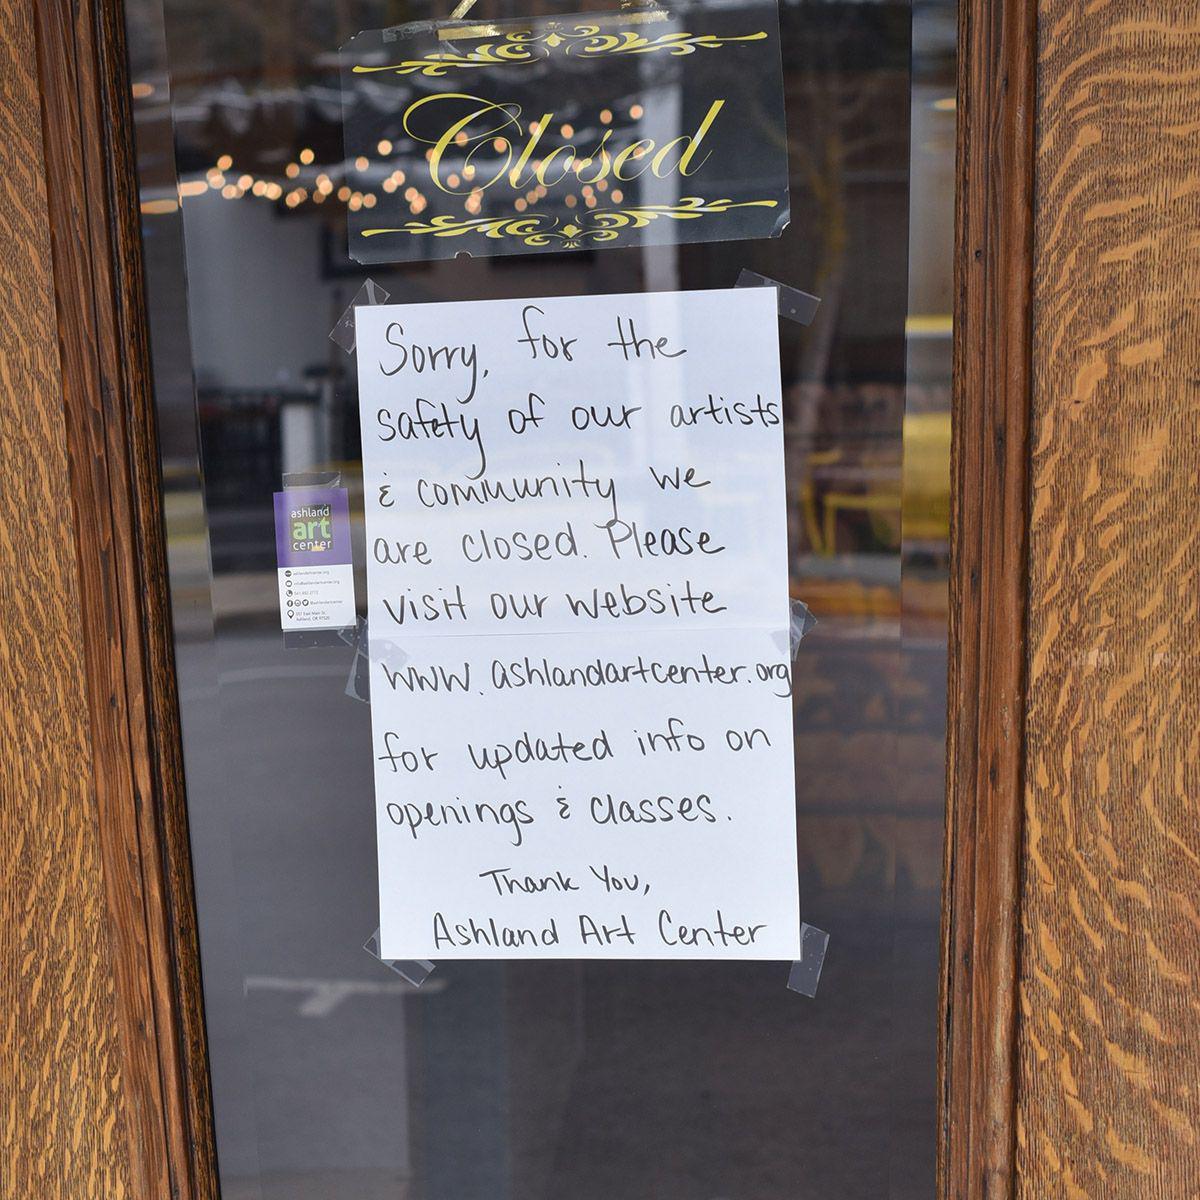 Closed
Sorry, for the
safety of our artists
& community we
are closed. Please
visit our website
www.ashlandartcenter.org
for updated info on
openings & classes.
Thank You,
Ashland Art Center
ashland
art
center
ashlandartcenter.org
info@ashlandartcenter.org
@ashlandartcenter
357 East Main St.
Ashland, OR 97520